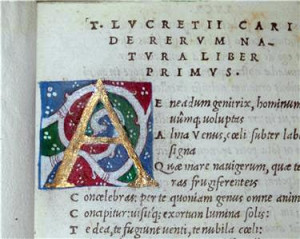 T. LUCRETII CARI
DE RERUM NA-
TURA LIBER
PRIMUS.
A E neadum genitrix, hominum
uumq; voluptas
A lma Venus, cœli subter labe
signa
Q uæ mare nauigerum, quæ te
ras frugiferenteis
C oncelebras: per te quoniam genus omne anim
C oncipitur: uisitq; exortum lumina solis:
T e dea, te fugiunt uenti, te nubila cœli: